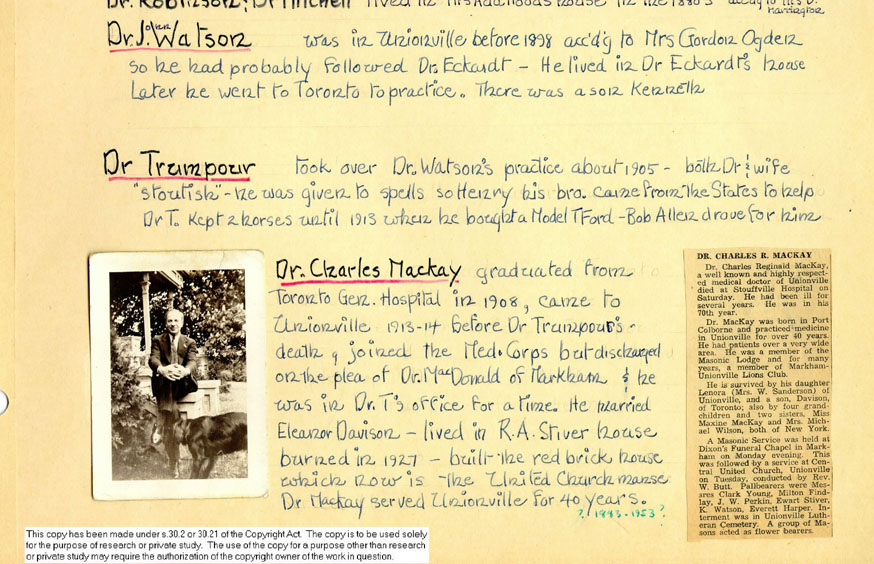 Dr. Robinson, Dr Mitchell lived in Mrs Addi house in the 1880's acc'dg to Mrs
Harrington
Dr. J. Watson was in Unionville before 1898 acc'd'g to Mrs Gordon Ogden
so he had probably followed Dr. Eckardt – He lived in Dr Eckardt's house
Later he went to Toronto to practice. There was a son Kenneth
Dr Trumpour took over Dr. Watson's practice about 1905 – both Dr & wife
"stoutish" – he was given to spells so Henry his bro. came from the States to help
Dr T. Kept 2 horses until 1913 when he bought a Model T Ford – Bob Allen drove for him
Dr. Charles Mackay graduated from
Toronto Gen. Hospital in 1908, came to
Unionville 1913-14 before Dr Trumpour's
death & joined the Med. Corps but discharged
on the plea of Dr. MacDonald of Markham & he
was in Dr. T's office for a time. He married
Eleanor Davison – lived in R.A. Stiver house
burned in 1927 – built the red brick house
which now is the United Church manse
Dr Mackay served Unionville for 40 years.
? 1883-1953 ?
DR. CHARLES R. MACKAY
Dr. Charles Reginald MacKay,
a well known and highly respect-
ed medical doctor of Unionville
died at Stouffville Hospital on
Saturday. He had been ill for
several years. He was in his
70th year.
Dr. MacKay was born in Port
Colborne and practiced medicine
in Unionville for over 40 years.
He had patients over a very wide
area. He was a member of the
Masonic Lodge and for many
years, a member of Markham-
Unionville Lions Club.
He is survived by his daughter
Lenora (Mrs. W. Sanderson) of
Unionville, and a son, Davison,
of Toronto; also by four grand-
children and two sisters, Miss
Maxine MacKay and Mrs. Mich-
ael Wilson, both of New York.
A Masonic Service was held at
Dixon's Funeral Chapel in Mark-
ham on Monday evening. This
was followed by a service at Cen-
tral United Church, Unionville
on Tuesday, conducted by Rev.
W. Butt. Pallbearers were Mes-
sres Clark Young, Milton Find-
lay, J. W. Perkin, Ewart Stiver,
K. Watson, Everett Harper. In-
terment was in Unionville Luth-
eran Cemetery. A group of Ma-
sons acted as flower bearers.
This copy has been made under s.30.2 or 30.21 of the Copyright Act. The copy is to be used solely
for the purpose of research or private study. The use of the copy for a purpose other than research
or private study may require the authorization of the copyright owner of the work in question.